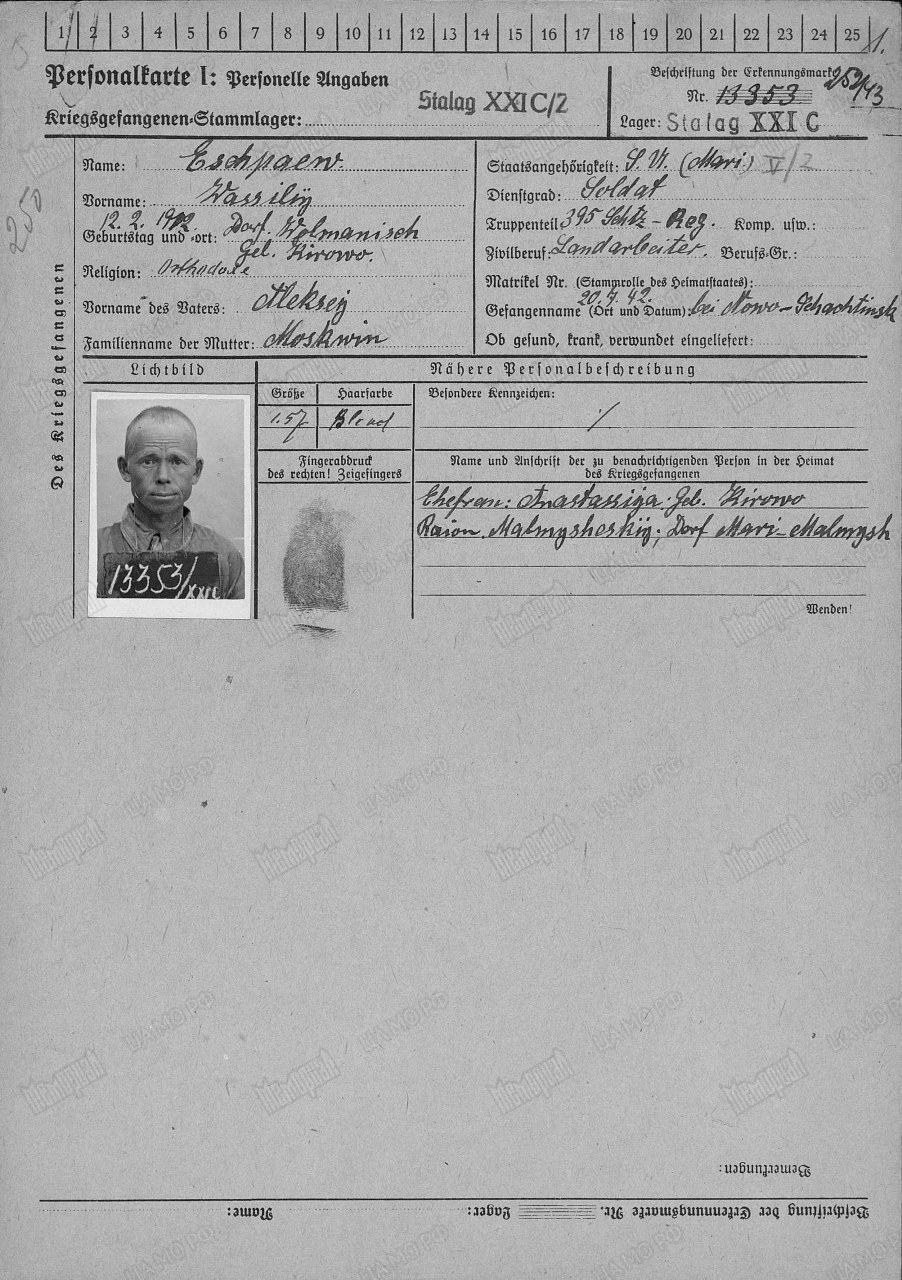 1 2 3 4 5 6 7 8 9 10 11 12 13 14 15 16 17 18 19 20 21 22 23 24 25
1.
Personalkarte I: Personelle Angaben
Kriegsgefangenen-Stammlager:
Stalag XXI C/2
Beschriftung der Erkennungsmarke
Nr. 13353
Lager: Stalag XXI C
250
Des Kriegsgefangenen
Name: Eschpaew.
Vorname: Wassilij
12. 2. 1902. Dorf. Wolmanisch
Geburtstag und -ort:
Geb. Kirowo.
Religion: Orthodoxe
Vorname des Vaters: Aleksej
Familienname der Mutter: Moskwin
Staatsangehörigkeit: S. U. (Mari) V/2
Dienstgrad: Soldat
Truppenteil 395 Schtz-Reg. Komp. usw.:
Zivilberuf: Landarbeiter. Berufs-Gr.:
Matrikel Nr. (Stammrolle des Heimatstaates):
20. 7. 42.
Gefangenname (Ort und Datum): bei Nowo-Schachtinsk
Ob gesund, krank, verwundet eingeliefert:
Lichtbild
Nähere Personalbeschreibung
Größe
Haarfarbe
1.57
Blond
Besondere Kennzeichen:
/
Fingerabdruck
des rechten! Zeigefingers
Name und Anschrift der zu benachrichtigenden Person in der Heimat
des Kriegsgefangenen
Ehefrau: Anastassija. Geb. Kirowo
Raion. Malmysheskij, Dorf Mari-Malmysh
13353/XXIC
Wenden!
Bemerkungen:
Beschriftung der Erkennungsmarke Nr. Lager: Name:
ЦАМО РФ
Мемориал